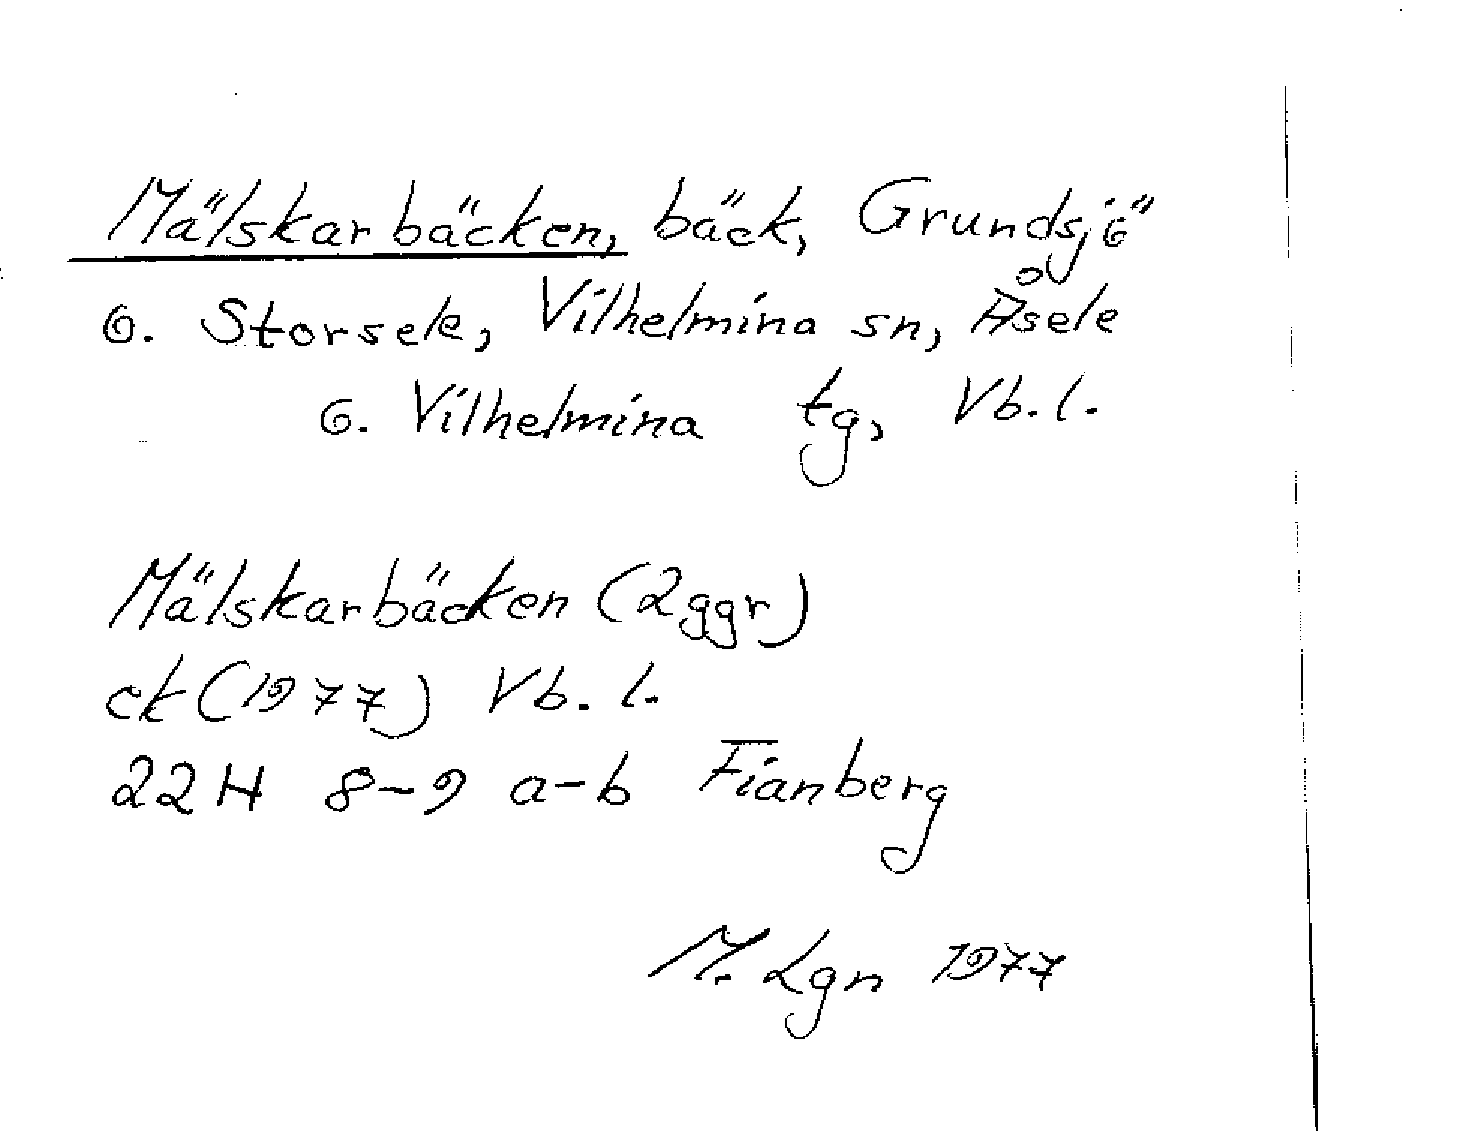 Mälskarbäcken, bäck, Grundsjö
o. Storsele, Vilhelmina sn, Åsele
o. Vilhelmina tg, Vb. l.
Mälskarbäcken (2ggr)
ek (1977) Vb. l.
22H 8-9 a-b Fianberg
M. Lgn 1977